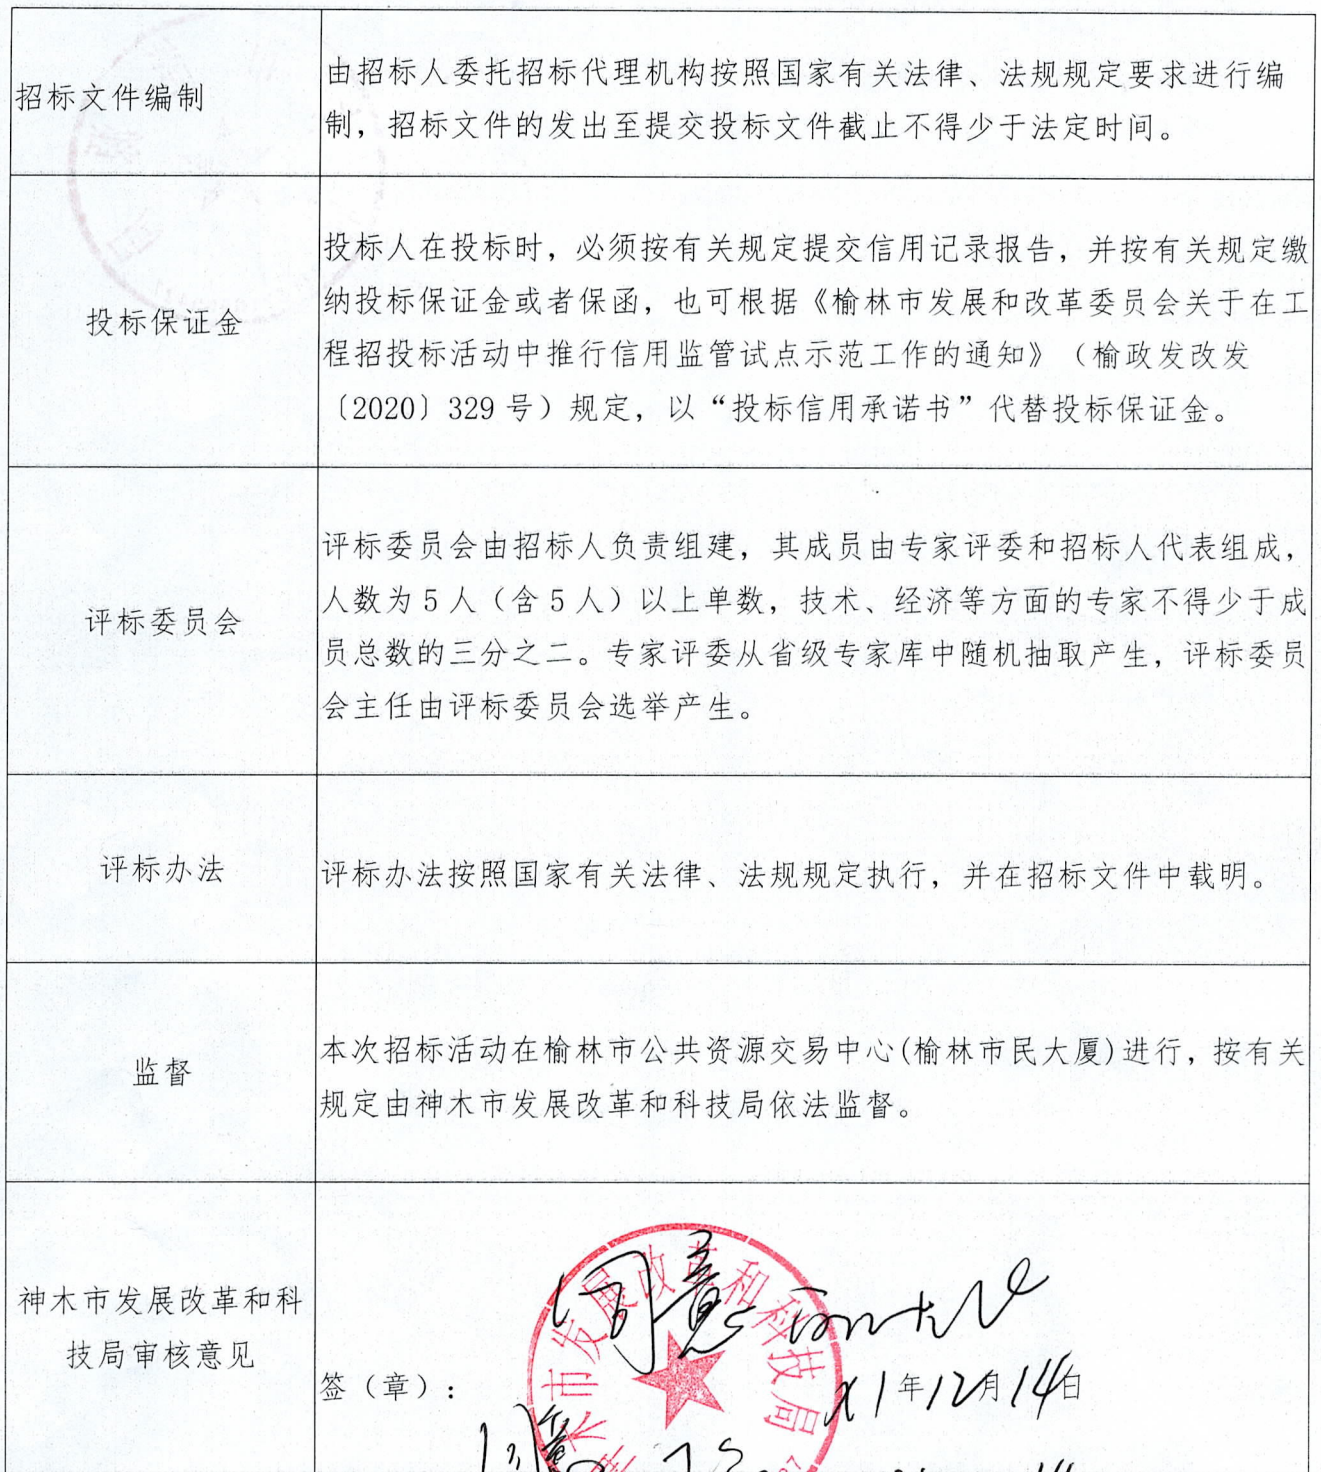 招标文件编制
由招标人委托招标代理机构按照国家有关法律、法规规定要求进行编
制，招标文件的发出至提交投标文件截止不得少于法定时间。
投标保证金
投标人在投标时，必须按有关规定提交信用记录报告，并按有关规定缴
纳投标保证金或者保函，也可根据《榆林市发展和改革委员会关于在工
程招投标活动中推行信用监管试点示范工作的通知》（榆政发改发
〔2020〕329号）规定，以“投标信用承诺书”代替投标保证金。
评标委员会
评标委员会由招标人负责组建，其成员由专家评委和招标人代表组成，
人数为5人（含5人）以上单数，技术、经济等方面的专家不得少于成
员总数的三分之二。专家评委从省级专家库中随机抽取产生，评标委员
会主任由评标委员会选举产生。
评标办法
评标办法按照国家有关法律、法规规定执行，并在招标文件中载明。
监督
本次招标活动在榆林市公共资源交易中心(榆林市民大厦)进行，按有关
规定由神木市发展改革和科技局依法监督。
神木市发展改革和科
技局审核意见
同意
木市发展改革和科技局
签（章）：
21年12月14日
同意